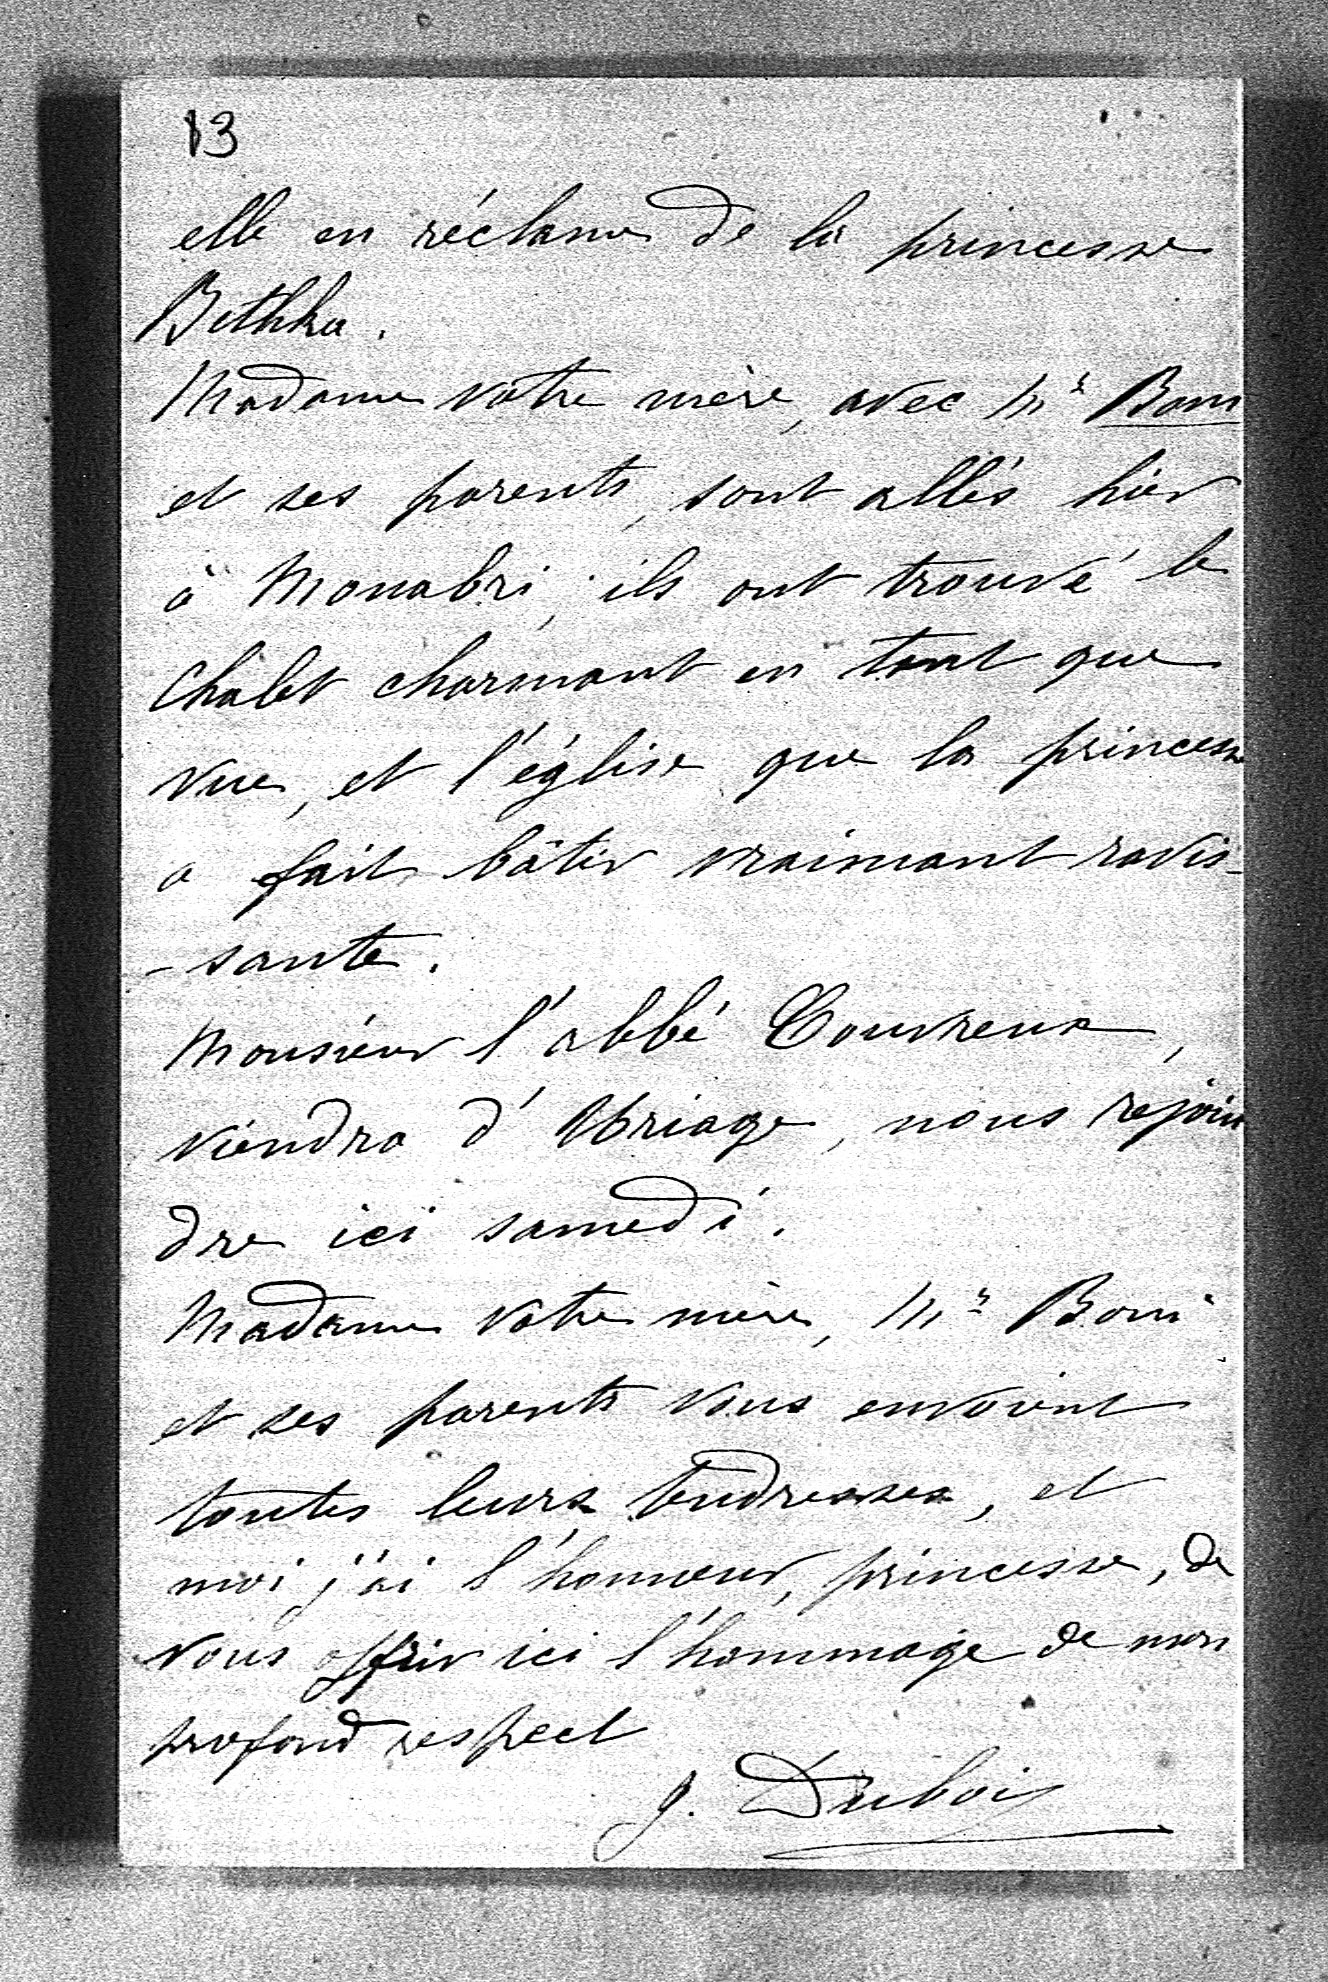 13
elle en réclame de la princesse
Bethka.
Madame votre mère, avec Mr Boni
et ses parents, sont allés hier
à Monabri, ils ont trouvé le
chalet charmant en tant que
vue, et l'église que la princesse
a fait bâtir vraimant ravis-
-sante.
Monsieur l'abbé Couvreux,
viendra d'Uriage, nous rejoin
dre ici samedi.
Madame votre mère, Mr Boni
et ses parents vous envoient
toutes leurs tendresses, et
moi j'ai l'honneur, princesse, de
vous offrir ici l'hommage de mon
profond respect
J. Dubois